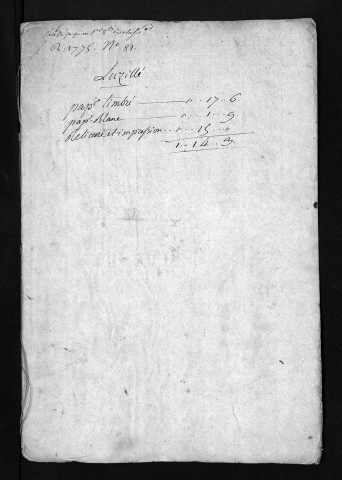 R. 1775. N° 81.
Luzillé
pap.r timbré — " .. 17 .. 6
pap.r blanc — " .. 1 .. 9.
Relieure et impression .. " .. 15 .. "
1 .. 14 .. 3.